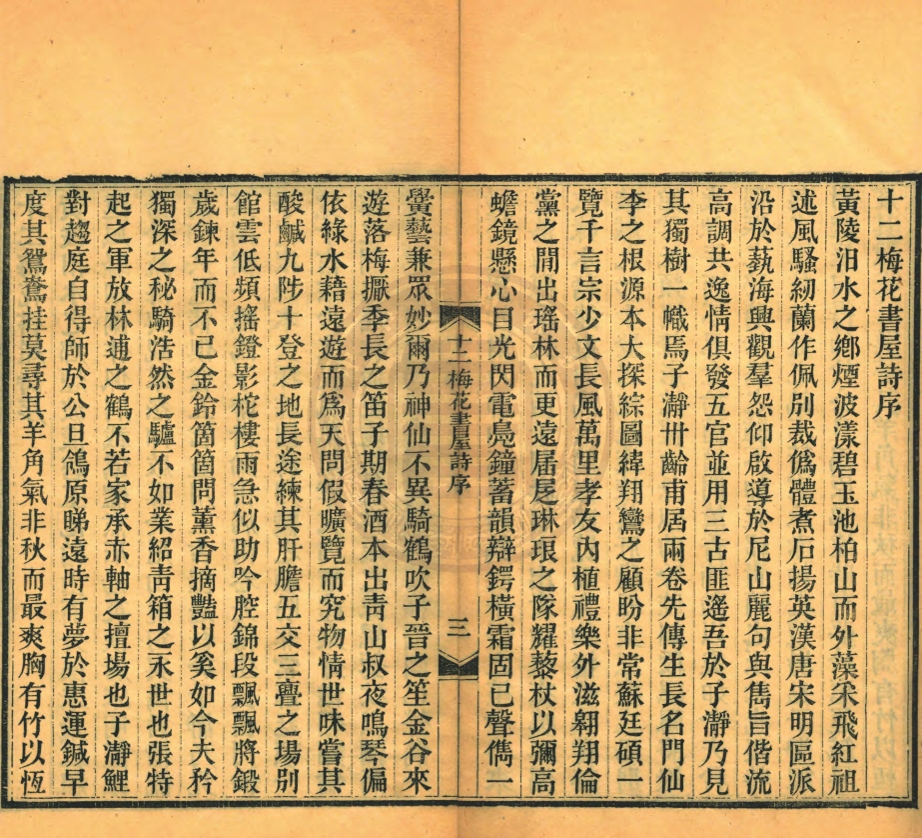 十二梅花書屋詩序
黃陵汨水之鄉煙波漾碧玉池柏山而外藻采飛紅祖
述風騷紉蘭作佩別裁僞體煮石揚英漢唐宋明區派
沿於藝海興觀羣怨仰啟導於尼山麗句與雋旨偕流
高調共逸情俱發五官並用三古匪遙吾於子瀞乃見
其獨樹一幟焉子瀞丗齡甫居兩卷先傳生長名門仙
李之根源本大探綜圖緯翔鸞之顧盼非常蘇廷碩一
覽千言宗少文長風萬里孝友內植禮樂外滋翱翔倫
黨之閒出瑤林而更遠屠琳琅之隊耀藜杖以彌高
蟾鏡懸心目光閃電鳧鐘蓄韻辯鍔橫霜固已聲儁一
黌藝兼眾妙爾乃神仙不異騎鶴吹子晉之笙金谷來
遊落梅擫季長之笛子期春酒本出青山叔夜鳴琴偏
依綠水藉遠遊而爲天問假曠覽而究物情世味嘗其
酸鹹九陟十登之地長途練其肝膽五交三亹之場別
館雲低頻搖鐙影柁樓雨急似助吟腔錦段飄飄將鍛
歲鍊年而不已金鈴箇箇問薰香摘豔以奚如今夫矜
獨深之秘騎浩然之驢不如業紹青箱之永世也張特
起之軍放林逋之鶴不若家承赤軸之擅場也子瀞鯉
對趨庭自得師於公旦鴿原睇遠時有夢於惠連鍼早
度其鴛鴦挂莫尋其羊角氣非秋而最爽胸有竹以恆
十二梅花書屋詩序
三